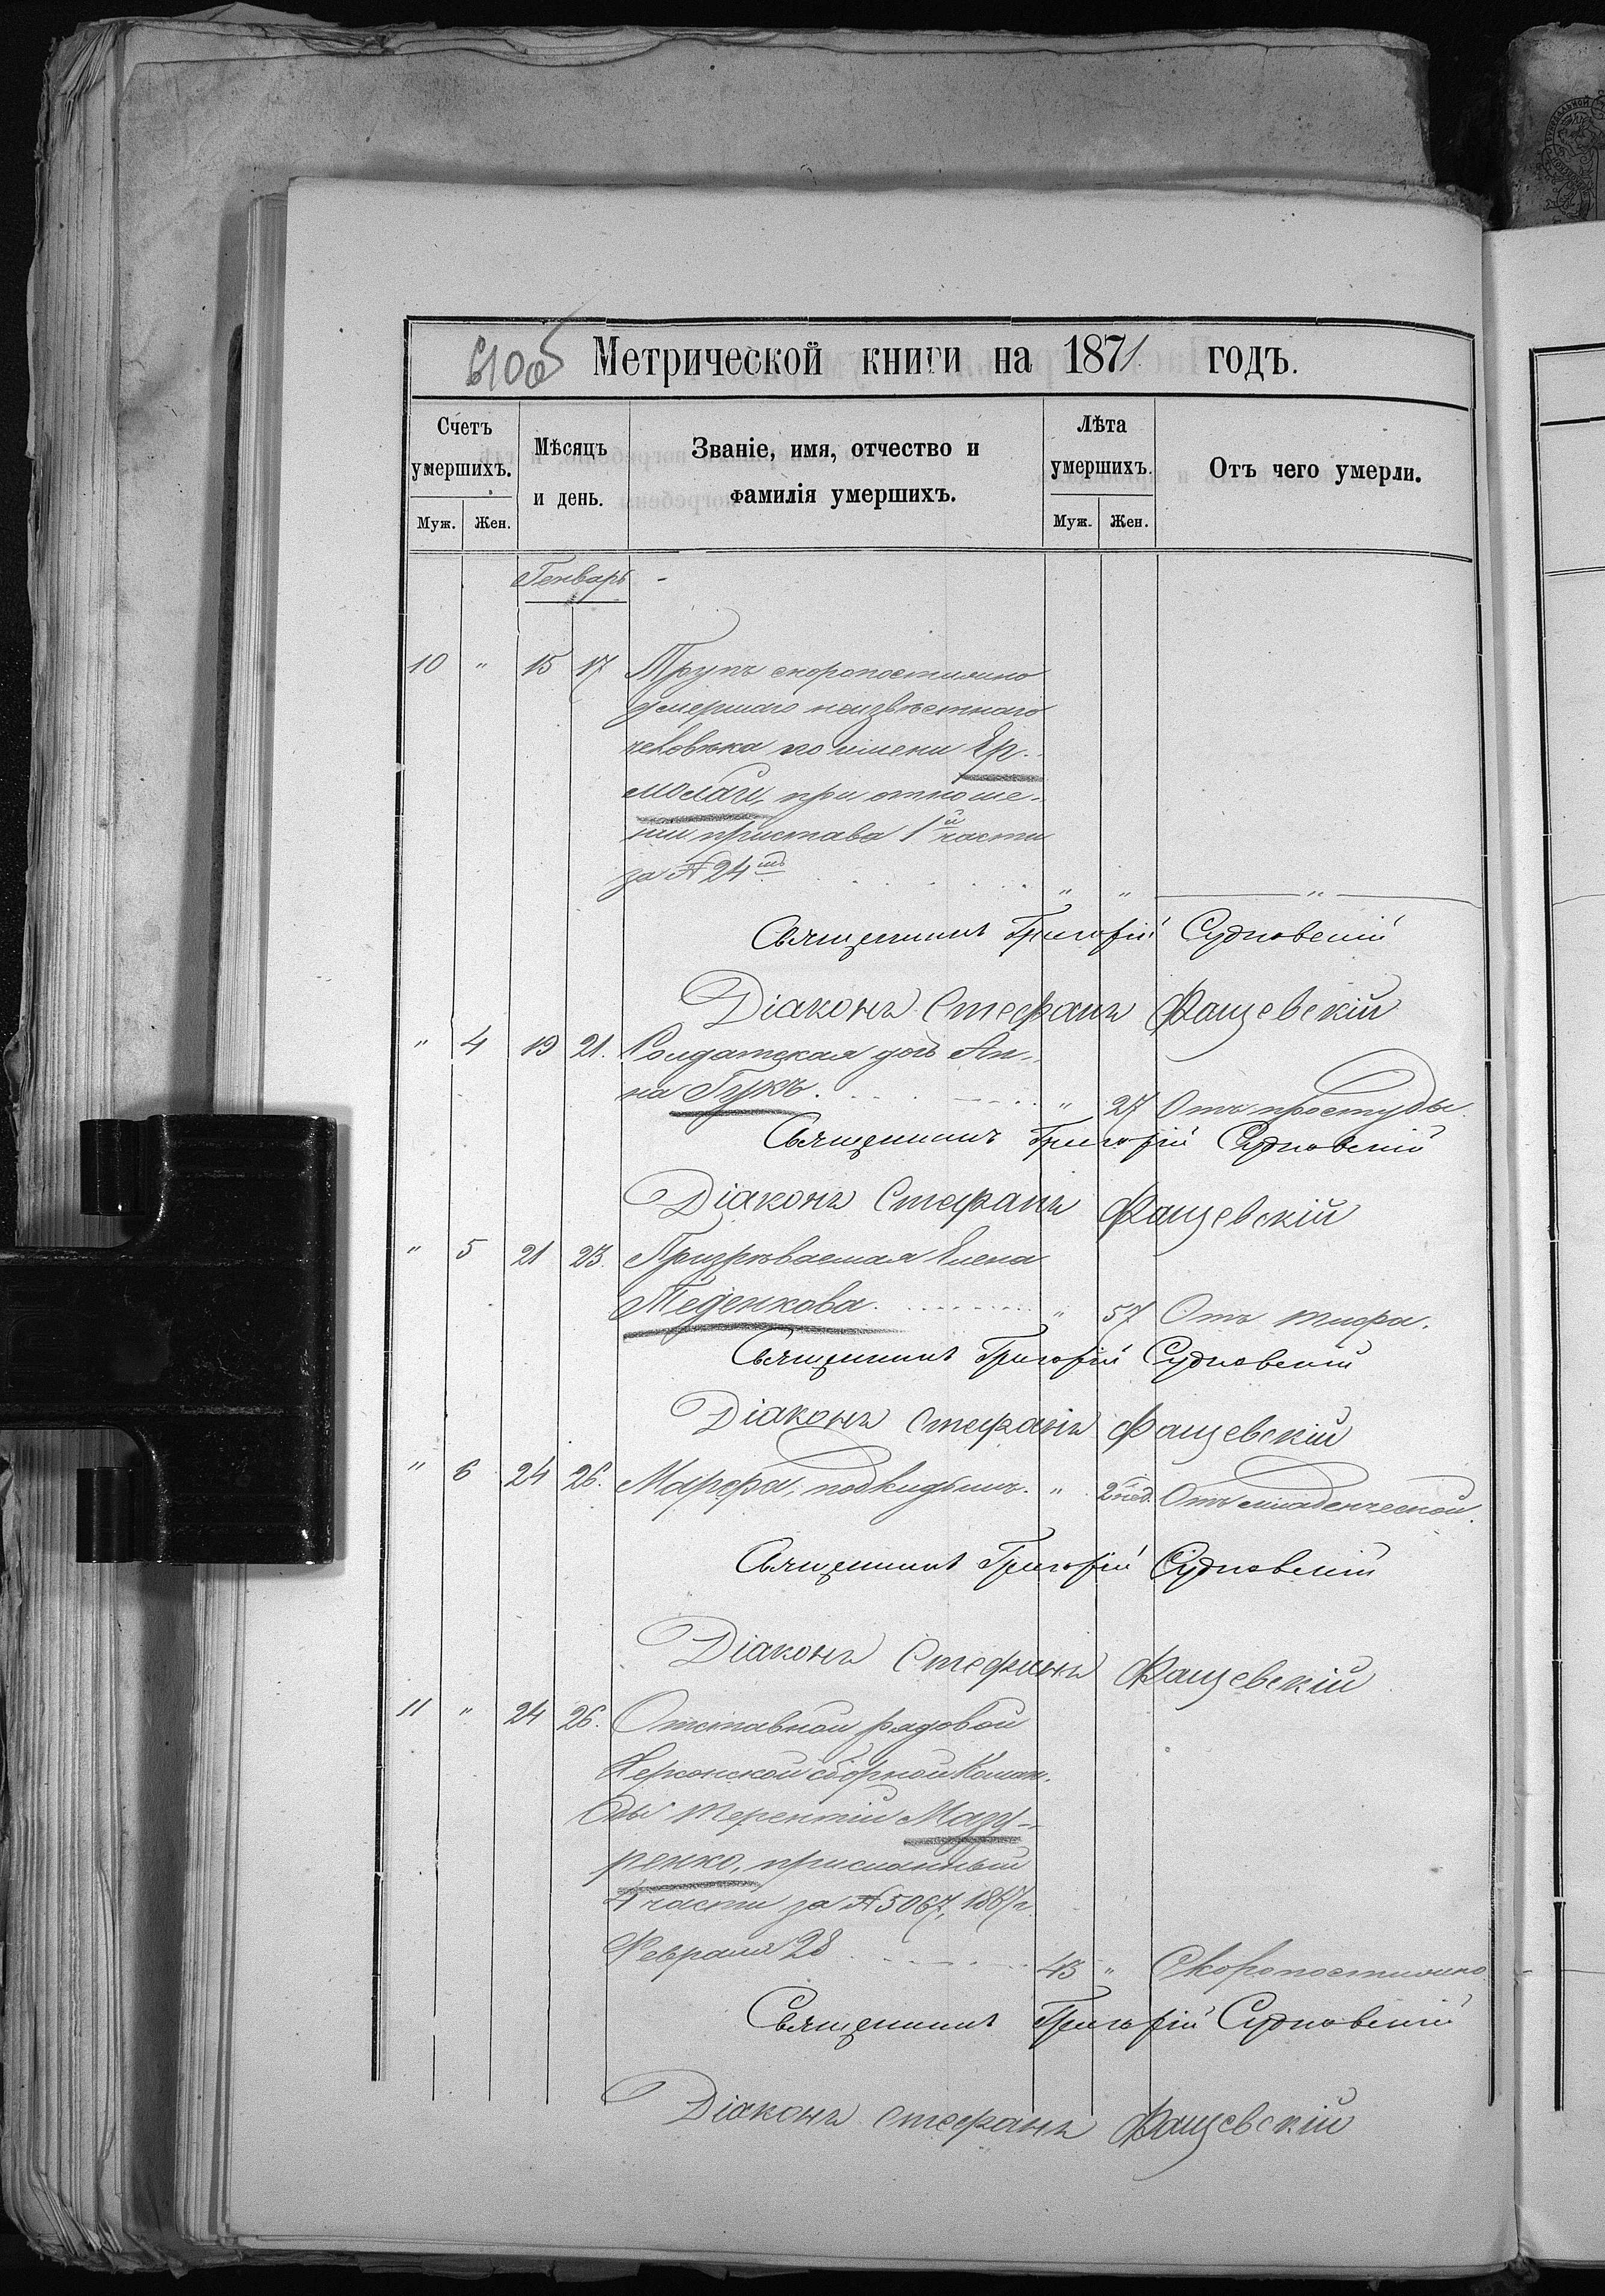 610об Метрической книги на 1871 годъ.
Счетъ умершихъ.
Мѣсяцъ и день.
Званіе, имя, отчество и фамилія умершихъ.
Лѣта умершихъ.
Отъ чего умерли.
Муж. Жен. Муж. Жен.
Генварь -
10 " 15 17 Трупъ скоропостижно
умершаго неизвѣстнаго
человѣка по имени Ер-
молай, при отноше-
ніи пристава 1й части
за № 24мъ " " "
Священникъ Григорій Судковскій
Діаконъ Стефанъ Фащевскій
" 4 19 21. Солдатская дочь Ан-
на Гукъ. " 27 Отъ простуды.
Священникъ Григорій Судковскій
Діаконъ Стефанъ Фащевскій
" 5 21 23. Призрѣваемая Елена
Теденкова. " 57 Отъ тифа.
Священникъ Григорій Судковскій
Діаконъ Стефанъ Фащевскій
" 6 24 26. Марфа, подкидышъ. " 2 нед. Отъ младенческой.
Священникъ Григорій Судковскій
Діаконъ Стефанъ Фащевскій
11 " 24 26. Отставной рядовой
Херсонской сборной Коман-
ды Терентій Мазу-
ренко, присланный
4 части за № 5067, 1867 г.
Февраля 28 43 " Скоропостижно
Священникъ Григорій Судковскій
Діаконъ Стефанъ Фащевскій